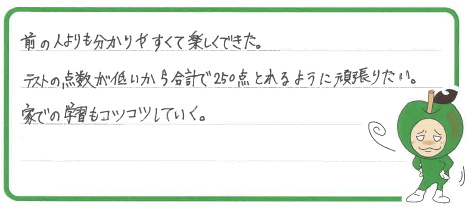 前の人よりも分かりやすくて楽しくできた。
テストの点数が低いから合計で250点とれるように頑張りたい。
家での学習もコツコツしていく。